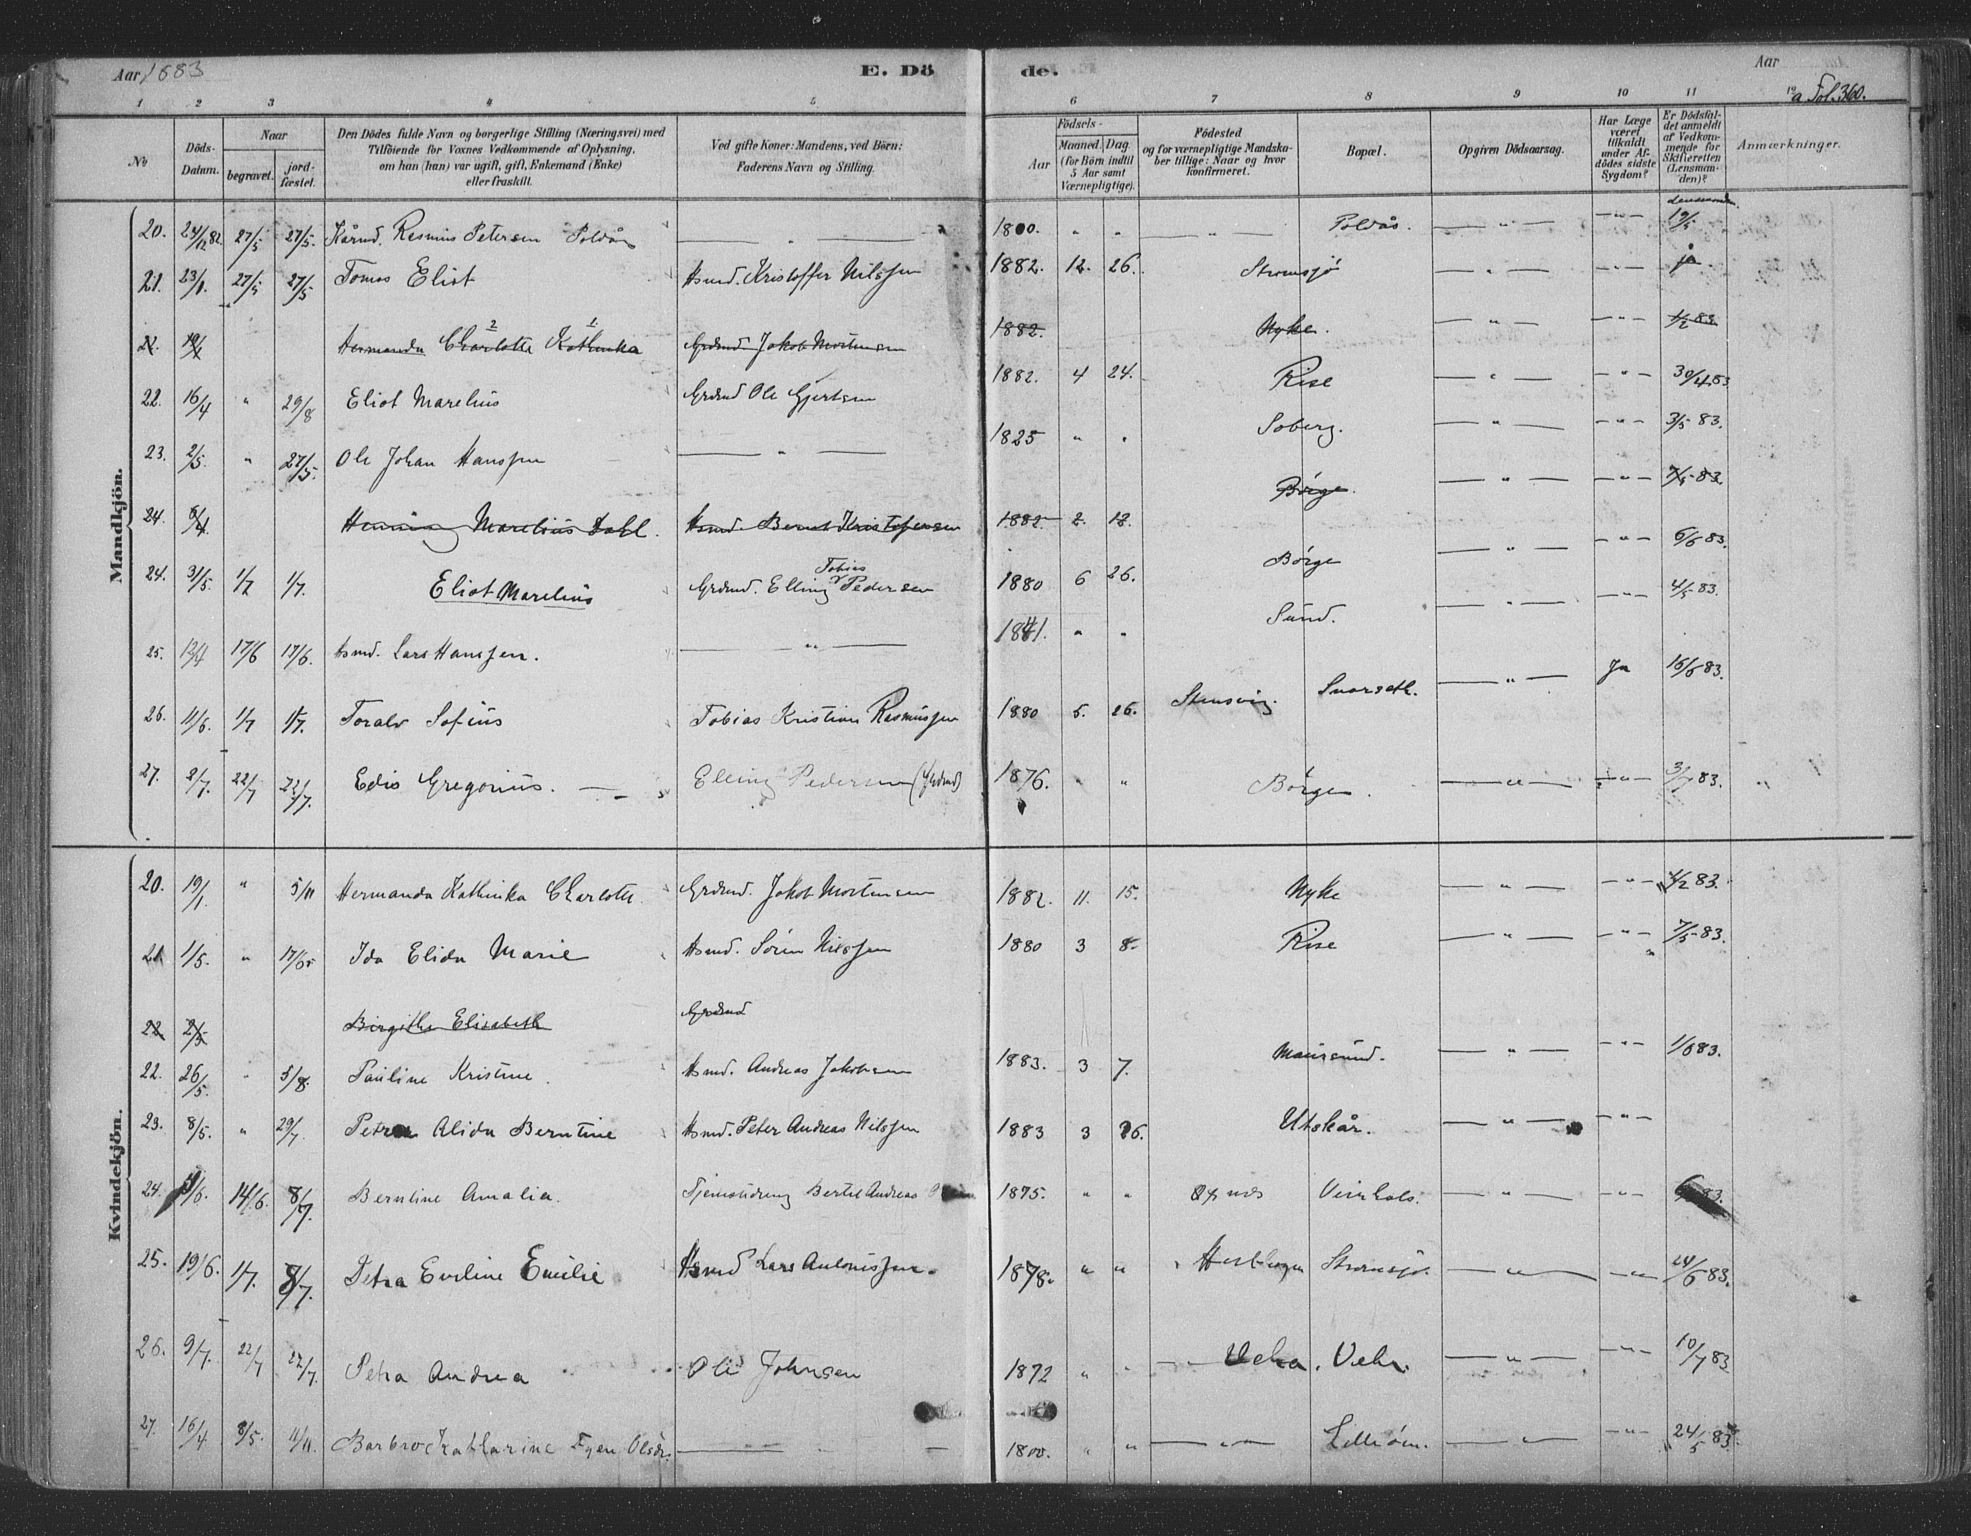 Aar 1883
E. Dö
de.
Aar
a Fol. 360.
1 2 3 4 5 6 7 8 9 10 11 12
No
Döds-Datum.
Naar
begravet.
jord-fæstet.
Den Dödes fulde Navn og borgerlige Stilling (Næringsvei) med
Tilföiende för Voxnes Vedkommende af Oplysning,
om han (hun) var ugift, gift, Enkemand (Enke)
eller fraskilt.
Ved gifte Koner: Mandens, ved Börn:
Faderens Navn og Stilling.
Födsels-
Aar
Maaned. Dag.
(for Börn indtil
5 Aar samt
Værnepligtige).
Födested
og for værnepligtige Mandska-
ber tillige: Naar og hvor
konfirmeret.
Bopæl.
Opgiven Dödsaarsag.
Har Læge
været
tilkaldt
under Af-
dödes sidste
Sygdom?
Er Dödsfal-
det anmeldt
af Vedkom-
mende for
Skifteretten
(Lensman-
den)?
Anmærkninger.
Mandkjön.
20. 24/12 82 27/5 27/5. Kårmd. Rasmus Petersen Poldås — " — 1800. " " — " — Poldås. — " — — " — 19/5
21. 23/1. 27/5 27/5 Tomas Eliot Hsmd. Kristoffer Nilssen 1882. 12. 26. Strømsjö — " — — " — ja
Hermanda Charlotte Kathinka Grdmd Jakob Mortensen 1882. Nyke. — " — — " — 1/2 83
22. 16/4 " 29/8 Eliot Marelius Grdmd Ole Gjertsen 1882. 4 24. Rise — " — — " — 30/4 83.
23. 2/5. " 27/5. Ole Johan Hanssen — " — 1825 " " Soberg. — " — — " — 3/5 83.
24. Henning Marelius Dahl. Hsmd. Bernt Kristofersen 1882. 2. 18. Börge. — " — — " — 7/5 83.
24. 31/5. 1/7 1/7. Eliot Marelius Grdmd. Elling Tobias Pedersen 1880 6 26. Börge — " — — " — 6/6 83.
25. 12/4 17/6 17/6. Hsmd. Lars Hanssen. — " — 1841. " " Sund. — " — — " — 4/5 83.
26. 11/6. 1/7 1/7. Toralv Sofius Tobias Kristian Rasmussen 1880 5. 26. Stensvig. Svorseth. — " — Ja 16/6 83.
27. 2/7. 22/7 22/7. Edis Gregorius. Elling Pedersen (Grdmd) 1876. " " Börgen. — " — — " — 3/7 83. "
Kvindekjön.
20. 19/1. " 5/11 Hermanda Kathinka Charlotte. Grdmd. Jakob Mortensen 1882. 11. 15. Nyke — " — — " — 1/2 83.
21. 1/5. " 17/6. Ida Elida Marie Hsmd. Sören Nilssen 1880 3 8. Rise — " — — " — 7/5 83.
22 2/5 Birgithe Elisabeth Grdmd
22. 26/5. " 5/8. Pauline Kristine. Hsmd. Andreas Jakobsen 1883. 3 7. Maursund. — " — — " — 1/6 83.
23. 8/5. " 29/7. Petra Alida Berntine Hsmd. Peter Andreas Nilssen 1883 3 26. Utskår. — " — — " —
24. 14/6. 8/7. Berntine Amalia. Tjenestdreng Bertel Andreas 1875. " " Öxnes Veirhals. — " — — " — 83.
25. 19/6. 1/7. 8/7. Petra Eveline Emilie Hsmd Lars Antonissen. 1878. " " Strømsjö. — " — — " — 24/6 83.
26. 9/7. 22/7 22/7. Petra Andrea Ole Johnsen 1872 " " Vehr. — " — — " — 10/7 83
27. 16/4 8/5. 11/11. Barbro Katharine Fyen Olsdr. — " — 1800. " " — " — Lilleöen. — " — — " — 24/5 83